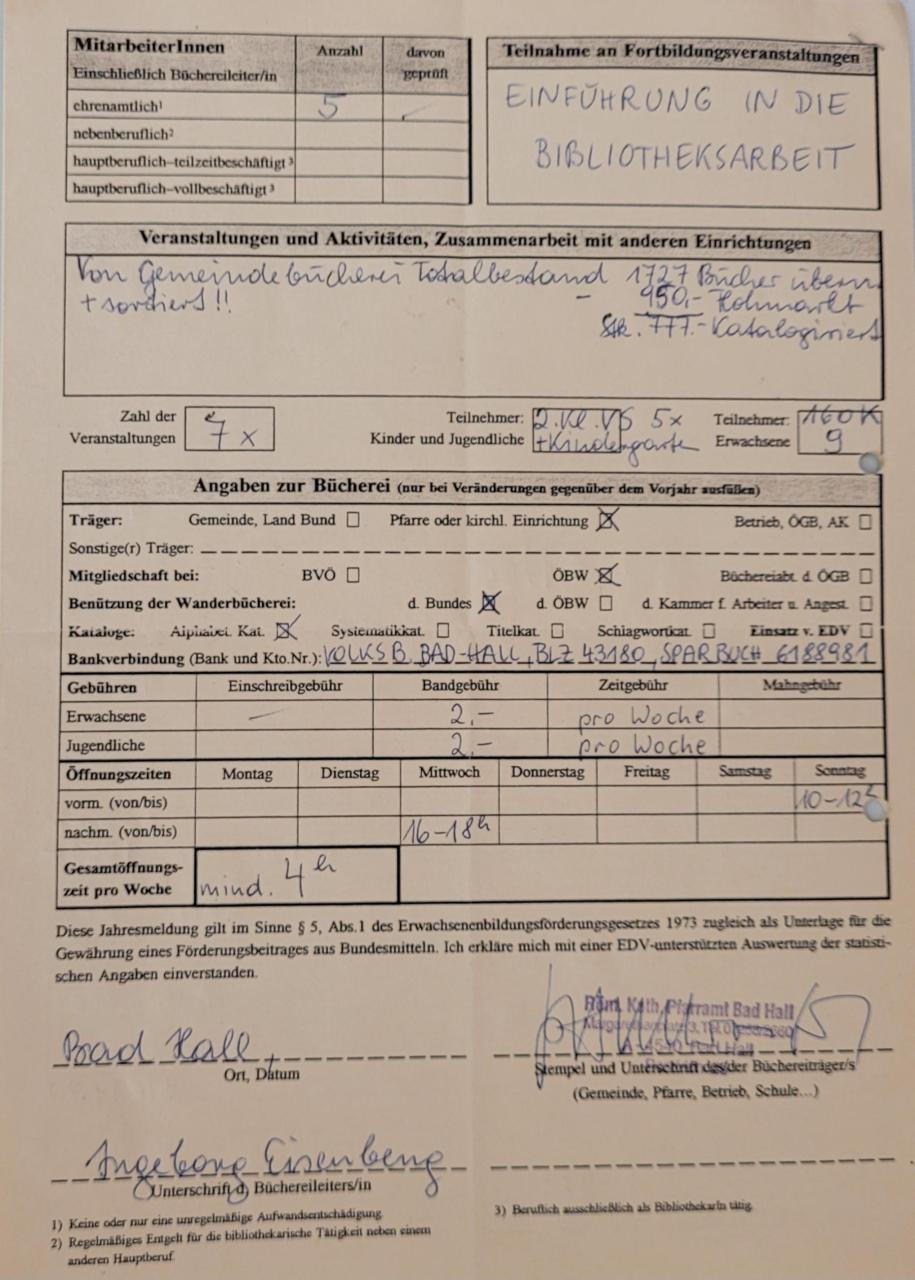 MitarbeiterInnen Anzahl davon
Einschließlich Büchereileiter/in geprüft
ehrenamtlich¹ 5 –
nebenberuflich²
hauptberuflich–teilzeitbeschäftigt ³
hauptberuflich–vollbeschäftigt ³
Teilnahme an Fortbildungsveranstaltungen
EINFÜHRUNG IN DIE
BIBLIOTHEKSARBEIT
Veranstaltungen und Aktivitäten, Zusammenarbeit mit anderen Einrichtungen
Von Gemeindebücherei Totalbestand 1727 Bücher übern
+ sortiert !! – 950,- Flohmarkt
Stk. 777.- Katalogisiert
Zahl der Teilnehmer: 2. Kl. VS 5x Teilnehmer: 160 K
Veranstaltungen 7 x Kinder und Jugendliche + Kindergarten Erwachsene 9
Angaben zur Bücherei (nur bei Veränderungen gegenüber dem Vorjahr ausfüllen)
Träger: Gemeinde, Land Bund ☐ Pfarre oder kirchl. Einrichtung ☒ Betrieb, ÖGB, AK ☐
Sonstige(r) Träger:
Mitgliedschaft bei: BVÖ ☐ ÖBW ☒ Büchereiabt. d. ÖGB ☐
Benützung der Wanderbücherei: d. Bundes ☒ d. ÖBW ☐ d. Kammer f. Arbeiter u. Angest. ☐
Kataloge: Alphabet. Kat. ☒ Systematikkat. ☐ Titelkat. ☐ Schlagwortkat. ☐ Einsatz v. EDV ☐
Bankverbindung (Bank und Kto.Nr.): VOLKSB. BAD-HALL, BLZ 43180, SPARBUCH 6188981
Gebühren Einschreibgebühr Bandgebühr Zeitgebühr Mahngebühr
Erwachsene – 2,- pro Woche
Jugendliche 2,- pro Woche
Öffnungszeiten Montag Dienstag Mittwoch Donnerstag Freitag Samstag Sonntag
vorm. (von/bis) 10-12h
nachm. (von/bis) 16-18h
Gesamtöffnungs-
zeit pro Woche mind. 4h
Diese Jahresmeldung gilt im Sinne § 5, Abs.1 des Erwachsenenbildungsförderungsgesetzes 1973 zugleich als Unterlage für die
Gewährung eines Förderungsbeitrages aus Bundesmitteln. Ich erkläre mich mit einer EDV-unterstützten Auswertung der statisti-
schen Angaben einverstanden.
Röm. Kath. Pfarramt Bad Hall
Bad Hall,
Ort, Datum
Stempel und Unterschrift des/der Büchereiträger/s
(Gemeinde, Pfarre, Betrieb, Schule...)
Ingeborg Eisenberg
Unterschrift d. Büchereileiters/in
1) Keine oder nur eine unregelmäßige Aufwandsentschädigung.
2) Regelmäßiges Entgelt für die bibliothekarische Tätigkeit neben einem
anderen Hauptberuf.
3) Beruflich ausschließlich als BibliothekarIn tätig.